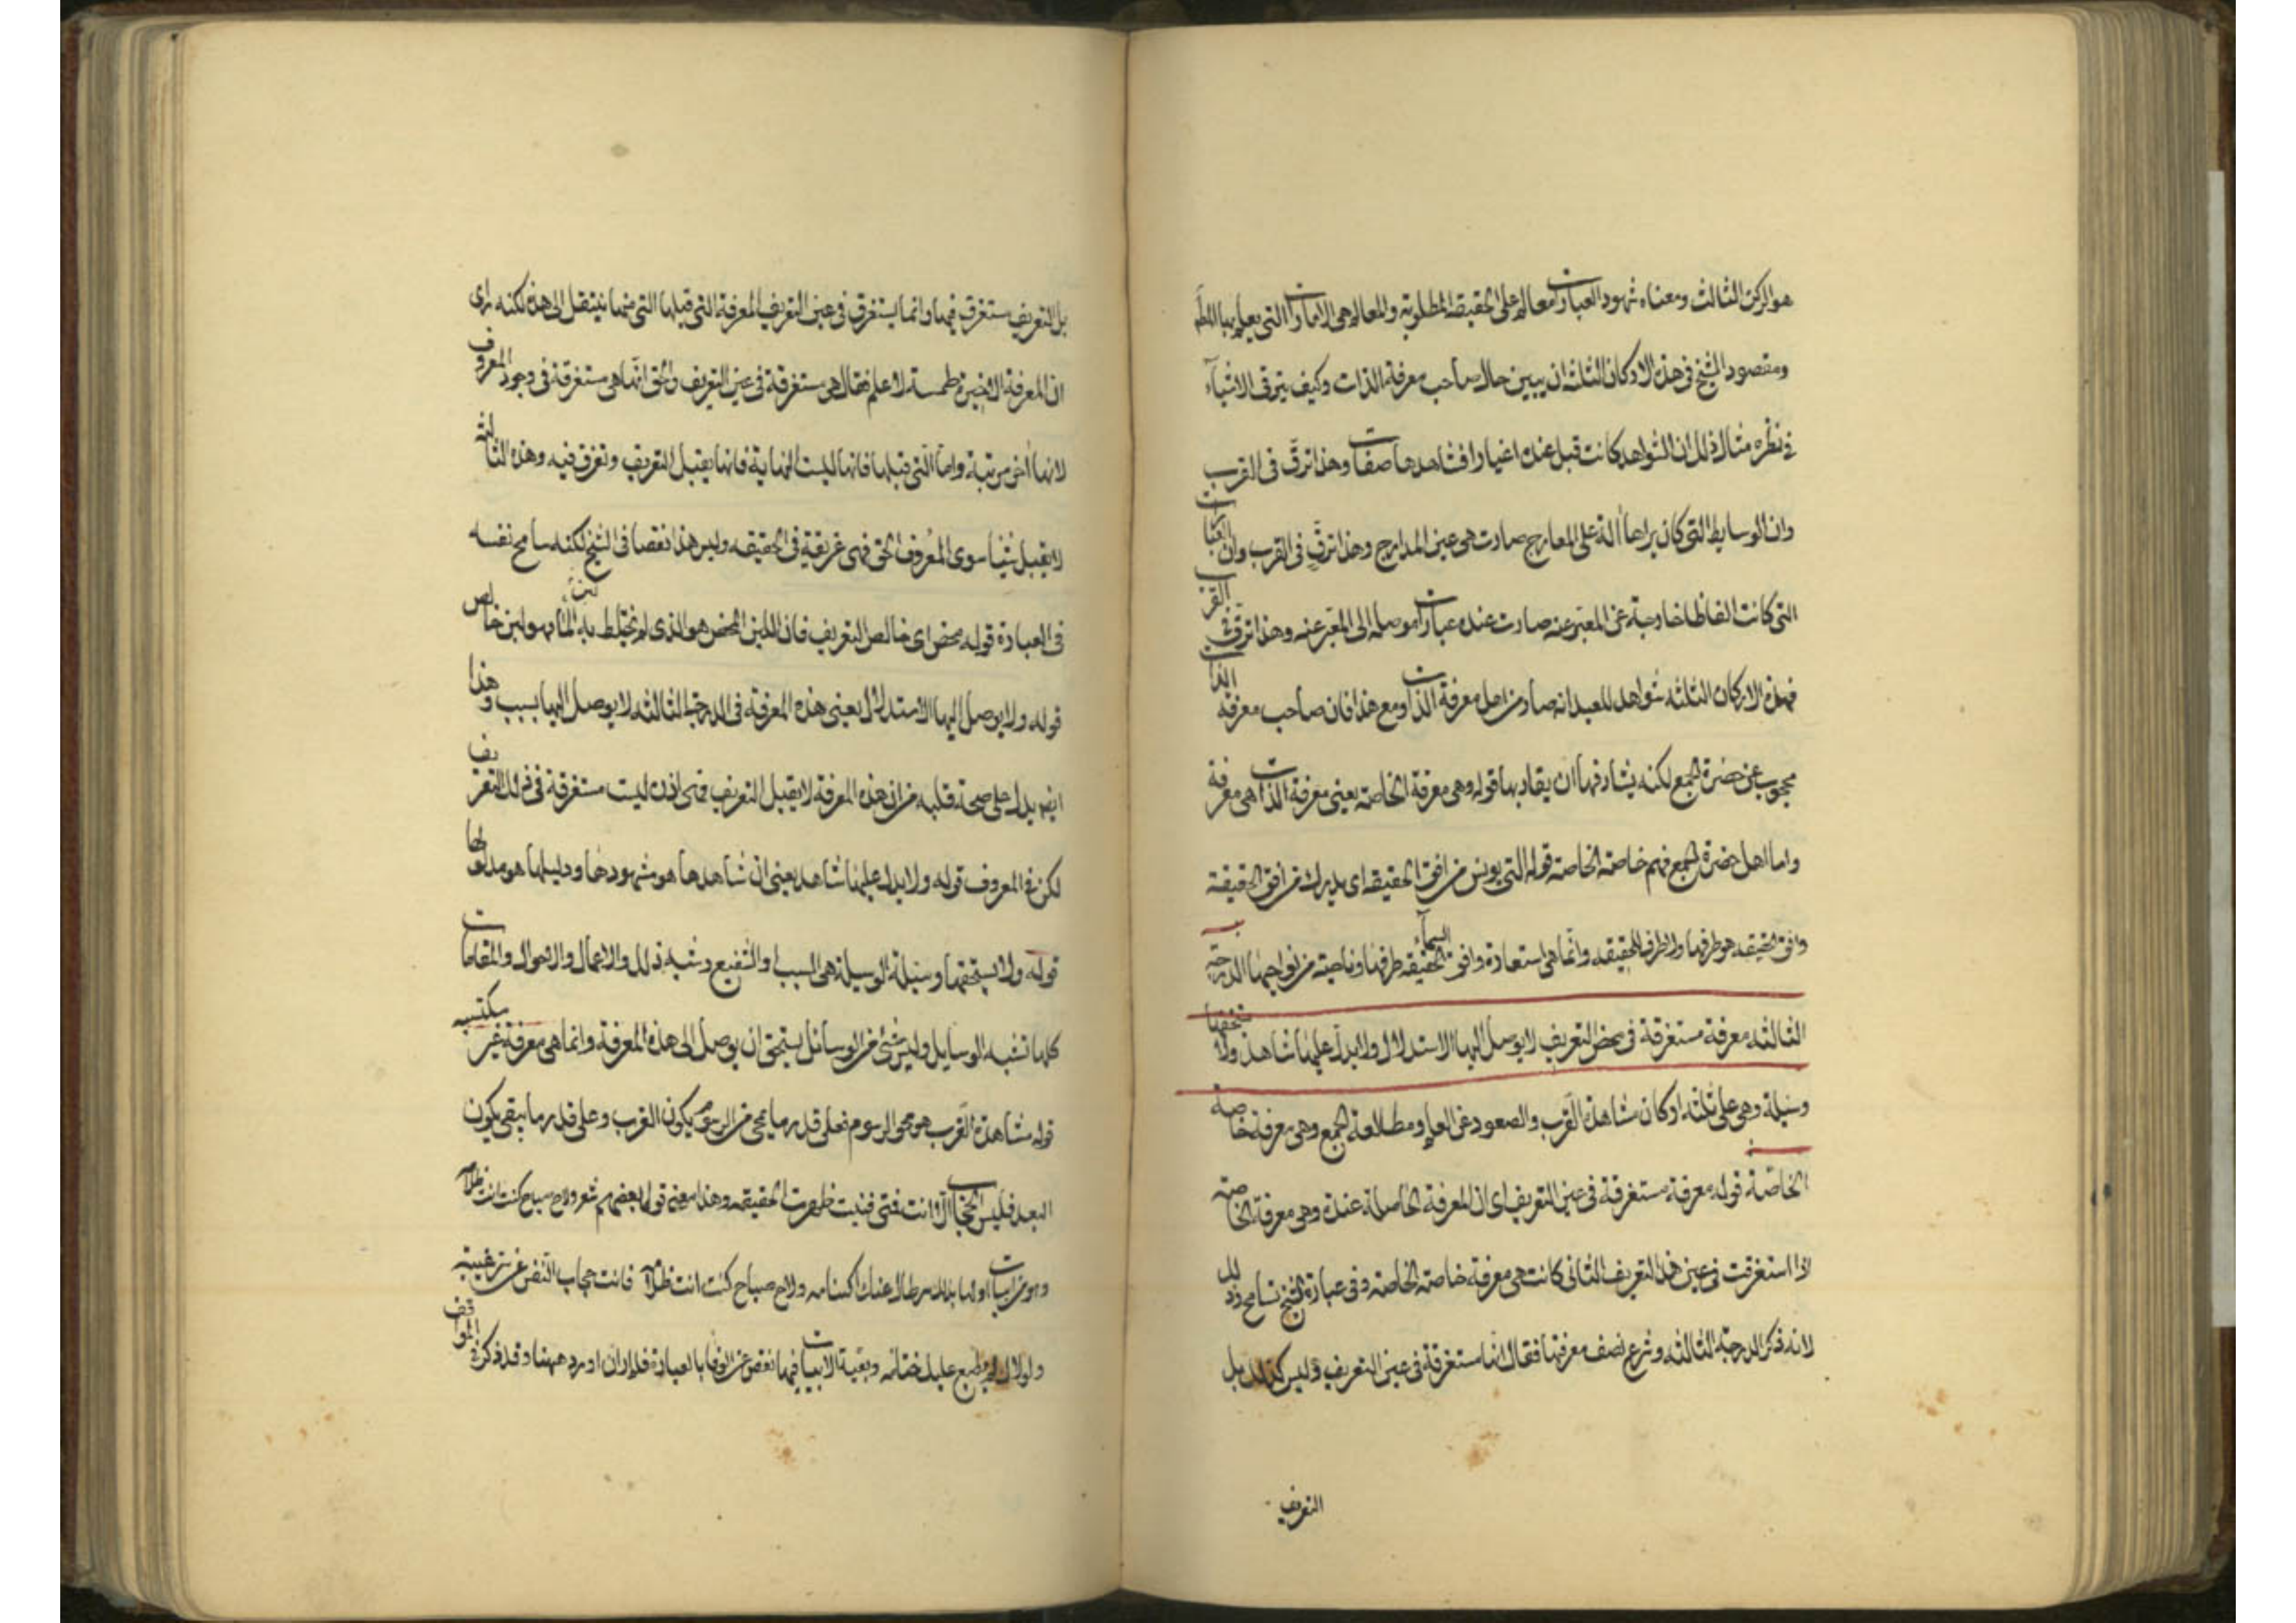 هو الركن الثالث ومعناه شهود العبارات معالم على الحقيقة المطلوبة والمعالم هى الامارات التى يعلم بها
ومقصود الشيخ فى هذه الاركان الثلثة ان يبين حال صاحب معرفة الذات وكيف يترقى الاشياء
فى نظره مثال ذلك ان الشواهد كانت قبل عنده اغيارا فشاهدها صفات وهذا ترقٍّ فى القرب
وان الوسايط التى كان يراها آلة على المعارج صارت هى عين المدارج وهذا ترقٍّ فى القرب وان العبارات
التى كانت الفاظا خارجة عن المعبر عنه صارت عنده عبارات موصلة الى المعبر عنه وهذا ترقٍّ فى القرب
فهذه الاركان الثلثة شواهد للعبد انه صار من اهل معرفة الذات ومع هذا فان صاحب معرفة الذات
محجوب عن حضرة الجمع لكنه يشارفها ان يقاربها قوله وهى معرفة الخاصة يعنى معرفة الذات هى معرفة
واما اهل حضرة الجمع فهم خاصة الخاصة قوله التى يونس من افق الحقيقة اى يدرك من افق الحقيقة
وافق الحقيقه هو طرفها ولا طرف للحقيقه وانما هى استعارة وافق السماء الحقيقه طرفها وناحيته من نواحيها الدرجة
الثالثه معرفة مستغرقة فى محض التعريف لا يوصل اليها الاستدلال ولا يدل عليها شاهد ولا تستحقها
وسيلة وهى على ثلثة اركان مشاهدة القرب والصعود عن العلم ومطالعة الجمع وهى معرفة خاصة
الخاصة قوله معرفة مستغرقة فى عين التعريف اى ان المعرفة الحاصلة عنده وهى معرفة الخاصة
اذا استغرقت فى عين هذا التعريف الثانى كانت هى معرفة خاصة الخاصة وفى عبارة الشيخ تسامح وذلك
لانه ذكر الدرجة الثالثه وشرع يصف معرفتها فقال انها مستغرقة فى عين التعريف وليس كذلك بل
التعريف
بل التعريف مستغرق فيها وانما يستغرق فى عين التعريف المعرفة التى قبلها التى منها ينتقل الى هذه لكنه راى
ان المعرفة الاخيرة طمسة لا علم فقال هى مستغرقة فى عين التعريف والحق انها هى مستغرقة فى وجود المعروف
لانها آخر مرتبة واما التى قبلها فانها ليست النهاية فانها يقبل التعريف وتغرق فيه وهذه الثالثة
لا يقبل شيئا سوى المعروف الحق فهى غريقة فى الحقيقه وليس هذا نقصا فى الشيخ لكنه سامح نفسه
فى العبارة قوله محض اى خالص التعريف فان اللبن المحض هو الذى لم يختلط به الماء فهو لبن خالص
قوله ولا يوصل اليها الاستدلال يعنى هذه المعرفة فى الدرجة الثالثه لا يوصل اليها بسبب وهذا
ايضا يدل على صحة قلبه من ان هذه المعرفة لا يقبل التعريف فهى اذن ليست مستغرقة فى ذلك التعريف
لكن فى المعروف قوله ولا يدل عليها شاهد يعنى ان شاهدها هو مشهودها ودليلها هو مدلولها
قوله ولا يستحقها وسيلة الوسيلة هى السبب والشفيع وشبه ذلك والاعمال والاحوال والمقامات
كلها تشبه الوسايل وليس شئ من الوسائل يستحق ان يوصل الى هذه المعرفة وانما هى معرفة غير مكتسبه
قوله مشاهدة القرب هو محو الرسوم فعلى قدر ما يمحى من الرسوم يكون القرب وعلى قدر ما يبقى يكون
البعد فليس الحجاب الا انت فمتى فنيت ظهرت الحقيقه وهذا معنى قول بعضهم شعر ولاح صباح كنت انت ظلامه
وهو من ابيات اولها بدا لك سر طال عنك اكتتامه ولاح صباح كنت انت ظلامه فانت حجاب النفس عن سر غيبه
ولولاك لم يطبع عليك ختامه وبقية الابيات فيها نقص عن الوفا بالعبارة فلم ار ان اورده ههنا وقد ذكر فى المواقف